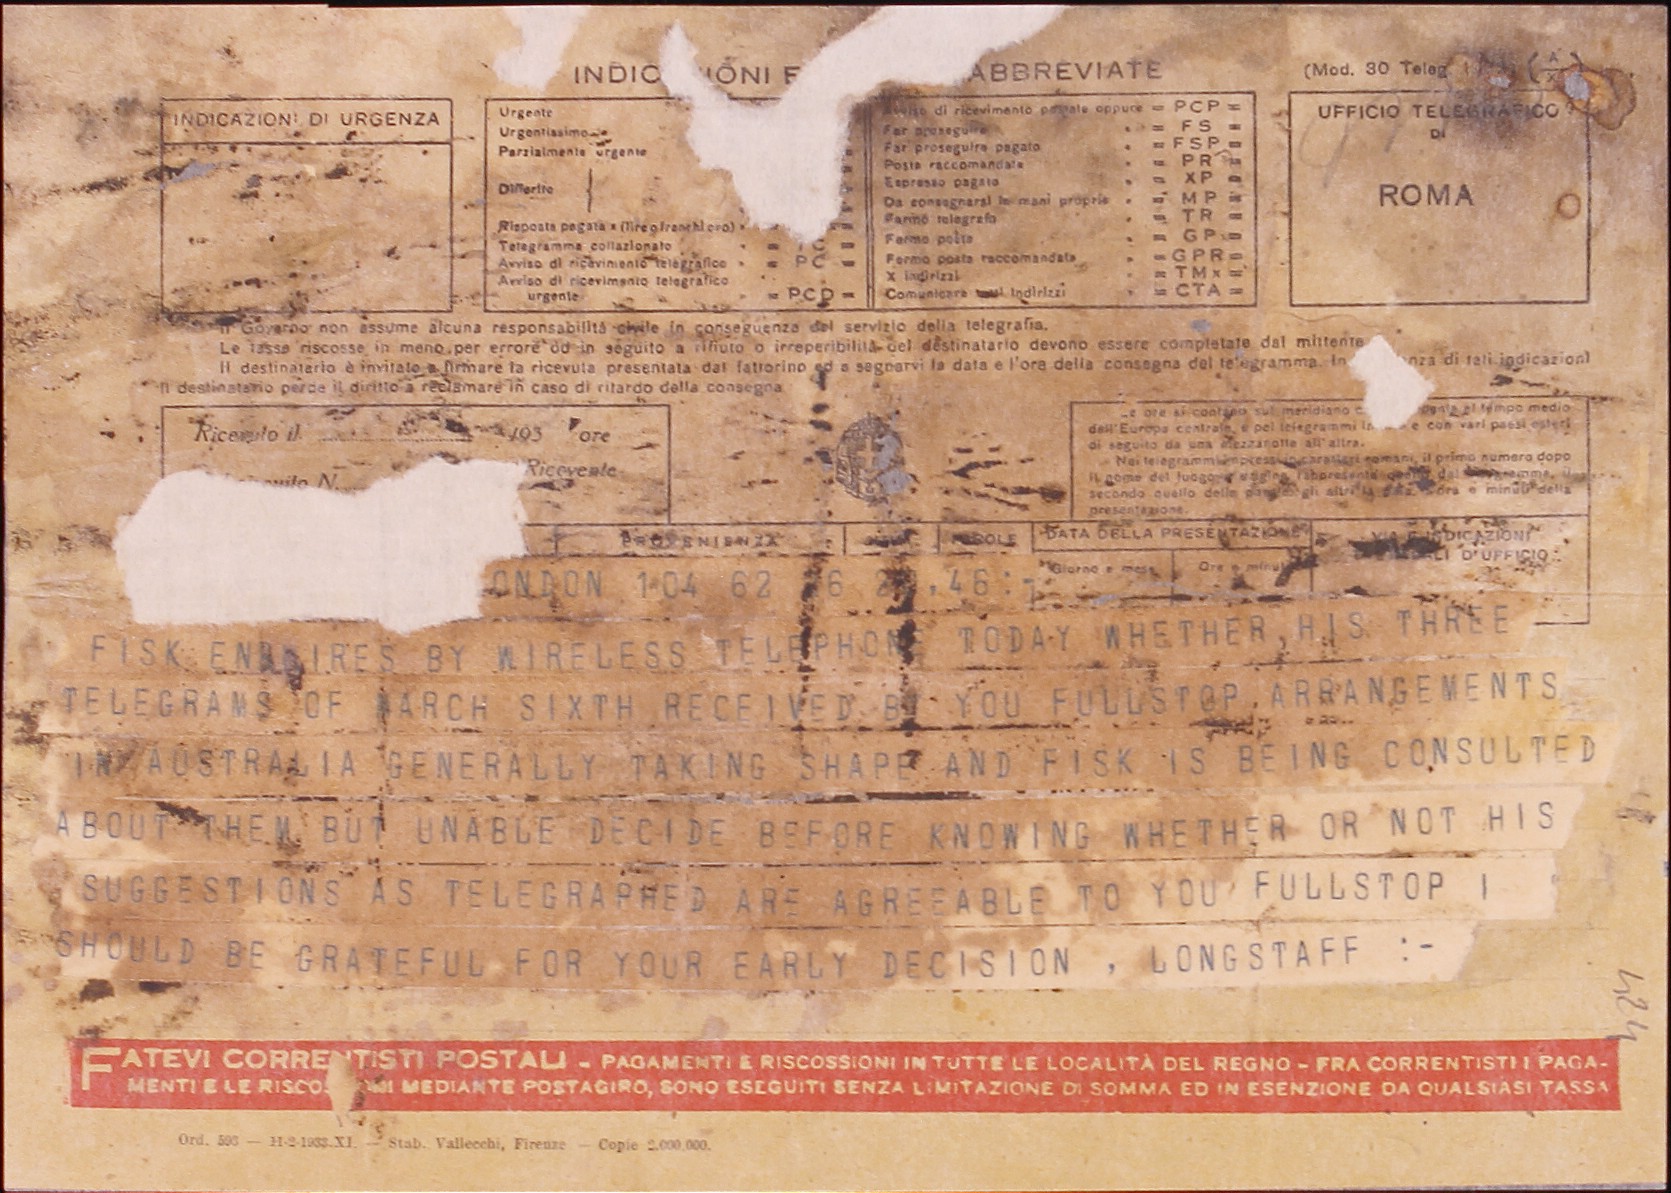 INDICAZIONI ABBREVIATE
(Mod. 30 Teleg
INDICAZIONI DI URGENZA
Urgente
Urgentissimo
Parzialmente urgente
Differito
Risposta pagata x (lire o franchi oro)
Telegramma collazionato = =
Avviso di ricevimento telegrafico = PC =
Avviso di ricevimento telegrafico
urgente = PCD =
Avviso di ricevimento postale oppure = PCP =
Far proseguire = FS =
Far proseguire pagato = FSP =
Posta raccomandata = PR =
Espresso pagato = XP =
Da consegnarsi in mani proprie = MP =
Fermo telegrafo = TR =
Fermo posta = GP =
Fermo posta raccomandata = GPR =
X indirizzi = TMx =
Comunicare tutti indirizzi = CTA =
UFFICIO TELEGRAFICO
DI
ROMA
Il Governo non assume alcuna responsabilità civile in conseguenza del servizio della telegrafia.
Le tasse riscosse in meno per errore od in seguito a rifiuto o irreperibilità del destinatario devono essere completate dal mittente
Il destinatario è invitato a firmare la ricevuta presentata dal fattorino ed a segnarvi la data e l'ora della consegna del telegramma. In nza di tali indicazioni
il destinatario perde il diritto a reclamare in caso di ritardo della consegna
Ricevuto il 193 ore
N. Ricevente
Le ore si contano sul meridiano al tempo medio
dell'Europa centrale, e pei telegrammi e con vari paesi esteri
di seguito da una mezzanotte all'altra.
Nei telegrammi impressi in caratteri romani, il primo numero dopo
il nome del luogo d'origine rappresenta quello del telegramma, il
secondo quello delle parole, gli altri la data, l'ora e minuti della
presentazione.
PROVENIENZA
DATA DELLA PRESENTAZIONE
Giorno e mese Ore e minuti
VIA E INDICAZIONI
D'UFFICIO
ONDON 104 62 6 2 ,46 :-
FISK ENQUIRES BY WIRELESS TELEPHONE TODAY WHETHER HIS THREE
TELEGRAMS OF MARCH SIXTH RECEIVED BY YOU FULLSTOP ARRANGEMENTS
IN AUSTRALIA GENERALLY TAKING SHAPE AND FISK IS BEING CONSULTED
ABOUT THEM BUT UNABLE DECIDE BEFORE KNOWING WHETHER OR NOT HIS
SUGGESTIONS AS TELEGRAPHED ARE AGREEABLE TO YOU FULLSTOP I
SHOULD BE GRATEFUL FOR YOUR EARLY DECISION , LONGSTAFF :-
424
FATEVI CORRENTISTI POSTALI - PAGAMENTI E RISCOSSIONI IN TUTTE LE LOCALITÀ DEL REGNO - FRA CORRENTISTI I PAGA-
MENTI E LE RISCOSSIONI MEDIANTE POSTAGIRO, SONO ESEGUITI SENZA LIMITAZIONE DI SOMMA ED IN ESENZIONE DA QUALSIASI TASSA
Ord. 593 — 11-2-1933-XI. — Stab. Vallecchi, Firenze — Copie 2.000.000.